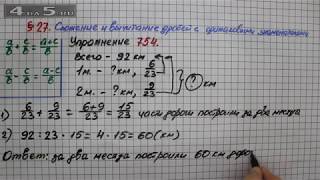 4АПОЖ5.ru
§27. Сложение и вычитание дробей с одинаковыми знаменателями
a/b + c/b = a+c/b
a/b - c/b = a-c/b
Упражнение 754.
Всего - 92 км
1м. - ? км, 6/23
2м. - ? км, 9/23
? км
1) 6/23 + 9/23 = 6+9/23 = 15/23 части дороги построили за два месяца
2) 92 : 23 · 15 = 4 · 15 = 60 (км)
Ответ: за два месяца построили 60 км доро